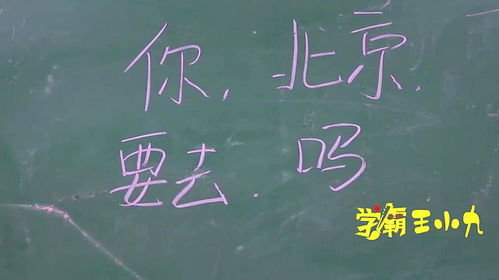 你,北京,
要去 吗
学霸王小九